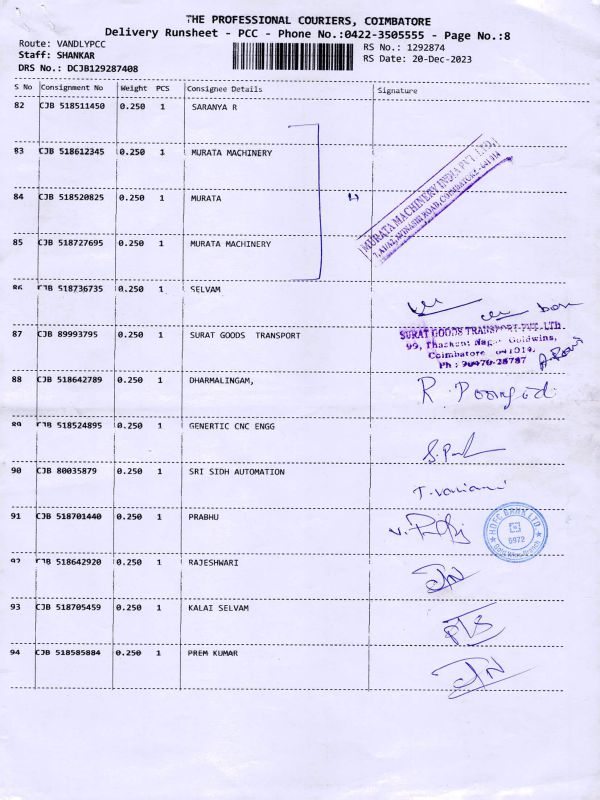 THE PROFESSIONAL COURIERS, COIMBATORE
Delivery Runsheet - PCC - Phone No.:0422-3505555 - Page No.:8
Route: VANDLYPCC RS No.: 1292874
Staff: SHANKAR RS Date: 20-Dec-2023
DRS No.: DCJB129287408
S No Consignment No Weight PCS Consignee Details Signature
82 CJB 518511450 0.250 1 SARANYA R
83 CJB 518612345 0.250 1 MURATA MACHINERY
84 CJB 518520825 0.250 1 MURATA
85 CJB 518727695 0.250 1 MURATA MACHINERY
MURATA MACHINERY INDIA PVT. LTD.
86 CJB 518736735 0.250 1 SELVAM
87 CJB 89993795 0.250 1 SURAT GOODS TRANSPORT
SURAT GOODS TRANSPORT PVT. LTD
99, Goldwins,
Coimbatore
88 CJB 518642789 0.250 1 DHARMALINGAM,
89 CJB 518524895 0.250 1 GENERTIC CNC ENGG
90 CJB 80035879 0.250 1 SRI SIDH AUTOMATION
91 CJB 518701440 0.250 1 PRABHU
HDFC BANK LTD.
6972
92 CJB 518642920 0.250 1 RAJESHWARI
93 CJB 518705459 0.250 1 KALAI SELVAM
94 CJB 518585884 0.250 1 PREM KUMAR